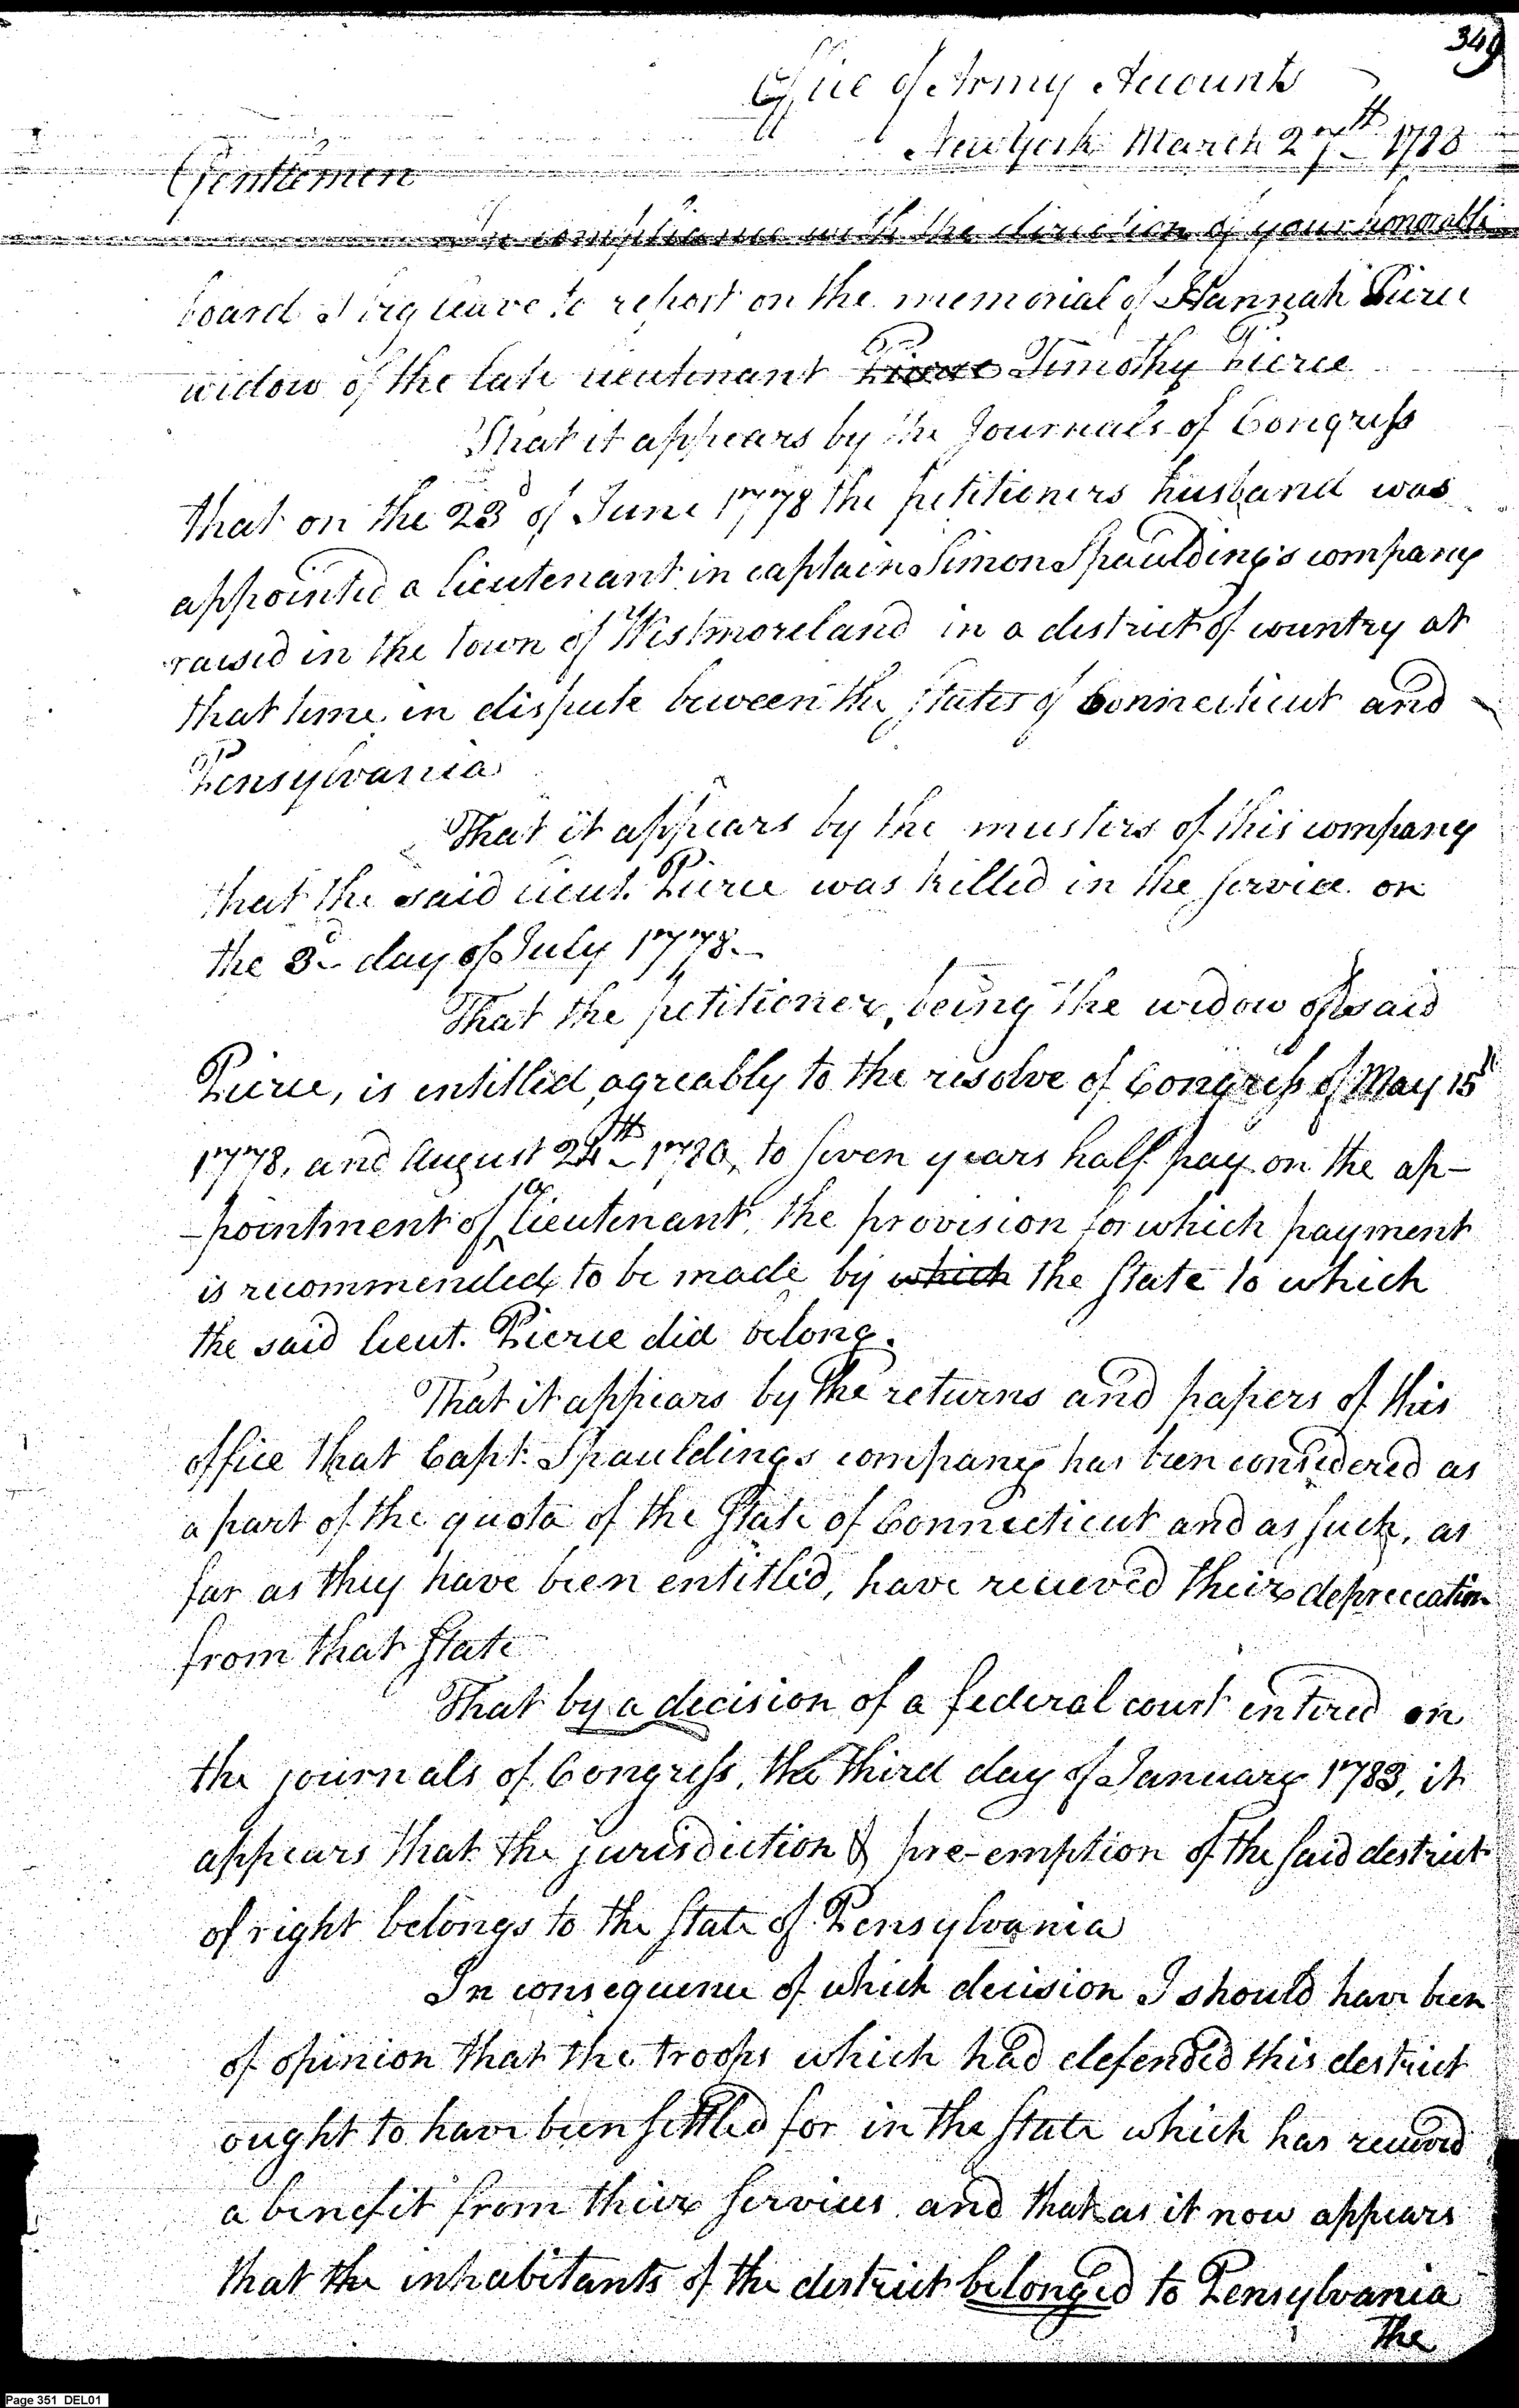 349
Office of Army Accounts
New York March 27th 1788
Gentlemen
In compliance with the direction of your honorable
board I beg leave to report on the memorial of Hannah Pierce
widow of the late lieutenant Pierce Timothy Pierce
That it appears by the Journals of Congress
that on the 23d of June 1778 the petitioners husband was
appointed a lieutenant in captain Simon Spaulding's company
raised in the town of Westmoreland in a district of country at
that time in dispute beween the states of Connecticut and
Pensylvania
That it appears by the musters of this company
that the said lieut. Pierce was killed in the service on
the 3d day of July 1778.
That the petitioner, being the widow of said
Pierce, is entitled, agreably to the resolve of Congress of May 15th
1778, and August 24th 1780, to seven years half pay on the ap-
-pointment of a lieutenant, the provision for which payment
is recommended to be made by which the state to which
the said lieut. Pierce did belong.
That it appears by the returns and papers of this
office that Capt. Spauldings company has been considered as
a part of the quota of the State of Connecticut and as such, as
far as they have been entitled, have recieved their depreciation
from that state
That by a decision of a federal court entered on
the journals of Congress, the third day of January 1783, it
appears that the jurisdiction & pre-emption of the said district
of right belongs to the state of Pensylvania
In consequence of which decision I should have been
of opinion that the troops which had defended this district
ought to have been settled for in the state which has recieved
a benefit from their services and that as it now appears
that the inhabitants of the district belonged to Pensylvania
The
Page 351 DEL01